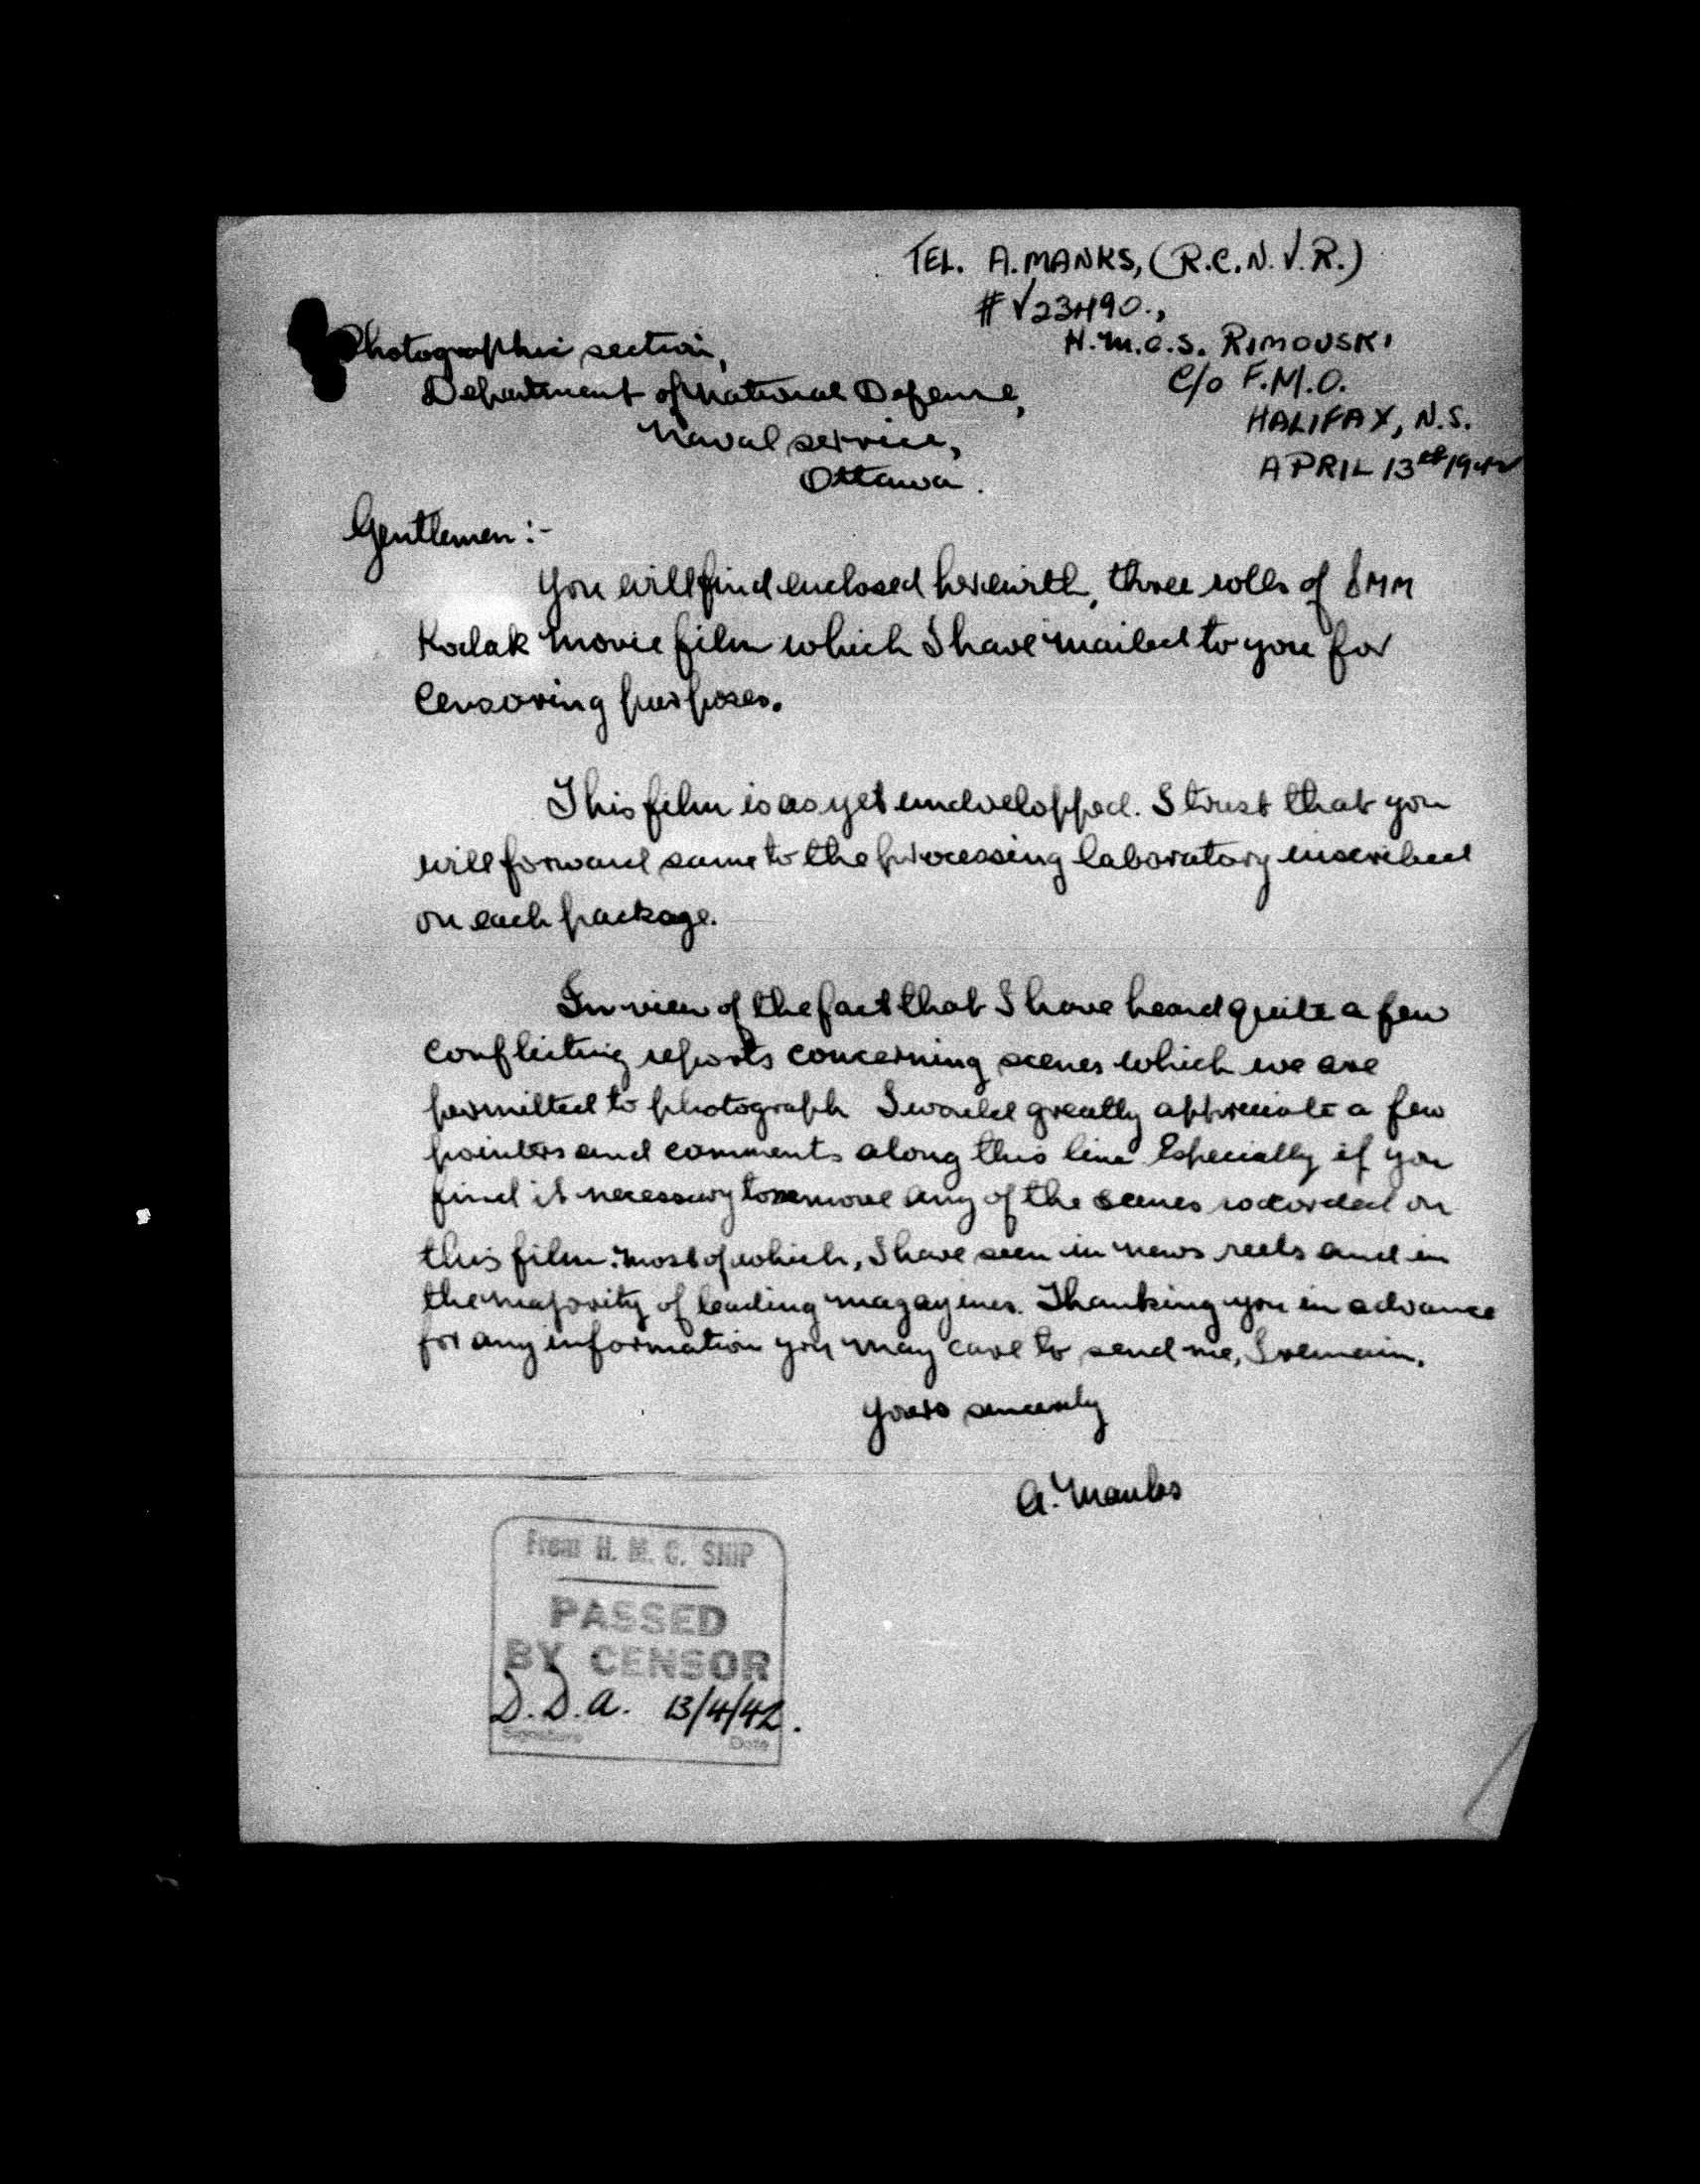 TEL. A. MANKS, (R.C.N.V.R.)
# V23490.,
H.M.C.S. RIMOUSKI
C/o F.M.O.
HALIFAX, N.S.
APRIL 13th 1942
Photographic section,
Department of National Defense,
Naval service,
Ottawa.
Gentlemen:-
You will find enclosed herewith, three rolls of 8MM
Kodak movie film which I have mailed to you for
Censoring purposes.
This film is as yet undevelopped. I trust that you
will forward same to the processing laboratory inscribed
on each package.
In view of the fact that I have heard quite a few
conflicting reports concerning scenes which we are
permitted to photograph I would greatly appreciate a few
pointers and comments along this line Especially if you
find it necessary to remove any of the scenes recorded on
this film. Most of which, I have seen in news reels and in
the majority of leading magazines. Thanking you in advance
for any information you may care to send me, I remain,
Yours sincerely
A. Manks
From H. M. C. SHIP
PASSED
BY CENSOR
D.D.A. 13/4/42.
Signature Date